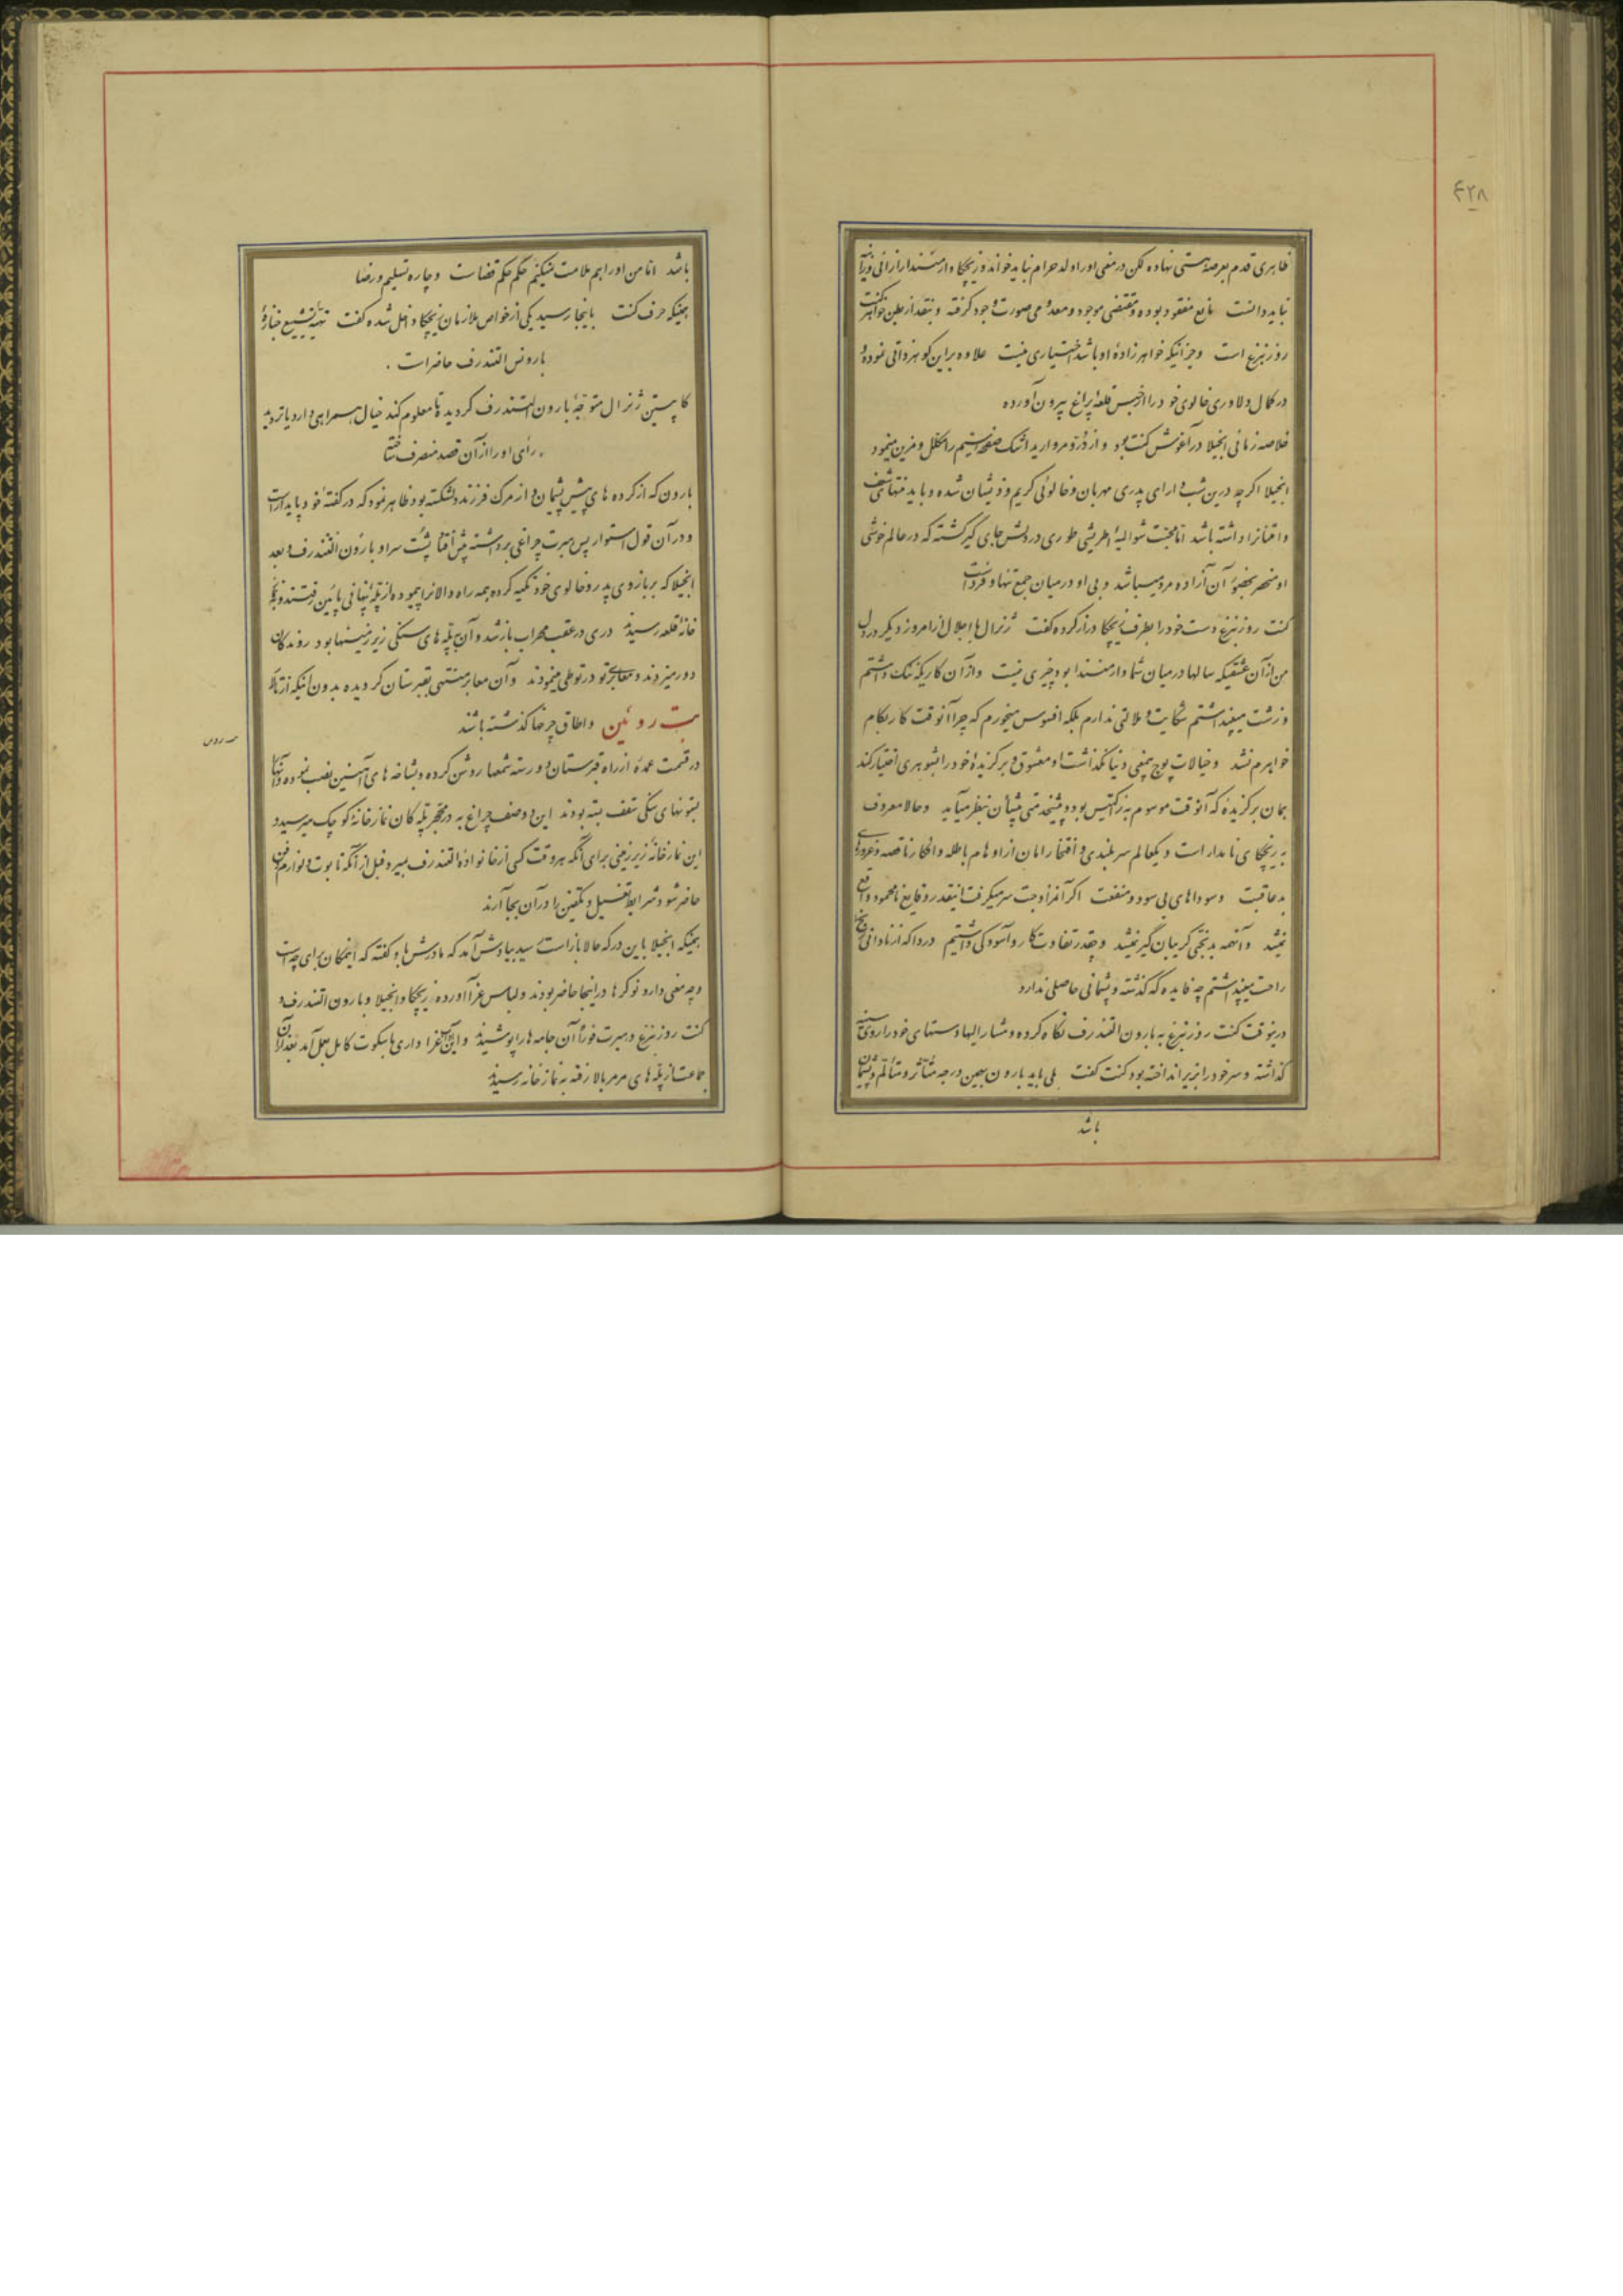 ۴۲۸
ظاهری قدم بعرصهٔ هستی نهاده لکن در معنی او را ولد حرام نباید خواند و زیچکا و ارمنستدار را زانی و زانیه
نباید دانست مانع مفقود بوده و مقتضی موجود و معدهٔ می صورت وجود گرفته و بنقد از بطن خواهر کنت
روزنبرغ است و جز اینکه خواهرزادهٔ او باشد اختیاری نیست علاوه براین گوهر ذاتی نموده و
در کمال دلاوری خالوی خود را از حبس قلعهٔ پراغ بیرون آورده
خلاصه زمانی انجیلا در آغوش کنت بود و از درّ و مروارید اشک صفحهٔ سیم را مکلل و مزین مینمود
انجیلا اگرچه درین شب دارای پدری مهربان و خالوئی کریم و ذیشان شده و باید منتهای شعف
و اعتنا را داشته باشد اما محبت شوالیهٔ اطریشی طوری در دلش جای گیر گشته که در عالم خوشی
او منحصر بحضور آن آزاده مرد میباشد و بی او در میان جمع تنها و فرد است
کنت روزنبرغ دست خود را بطرف زیچکا دراز کرده گفت ژنرال با اجلال از امروز دیگر در دل
من از آن عشقیکه سالها در میان شما و ارمنستدا بود چیزی نیست و از آن کاریکه ننگ داشتم
و زشت میپنداشتم شکایت و ملالتی ندارم بلکه افسوس میخورم که چرا آنوقت کار بکام
خواهرم نشد و خیالات پوچ بیمعنی دنیا نگذاشت او معشوق و برگزیدهٔ خود را بشوهری اختیار کند
همان برگزیدهٔ که آنوقت موسوم به زرکتیس بود و پیشخدمتی پیشان بنظر میآید و حالا معروف
به زیچکای نامدار است و یکعالم سربلندی و افتخار امان از اوهام باطله و افکار ناقصه و غرورهای
بدعاقبت و سوداهای بی سود و منفعت اگر آنمزاوجت سر میگرفت اینقدر وقایع نامحمود واقع
نمیشد و آنهمه بدبختی گریبان گیر نمیشد و چقدر تفاوت کار و آسودگی داشتیم دردا که از نادانی رنج را
راحت میپنداشتم چه فایده که گذشته و پشیمانی حاصلی ندارد
درینوقت کنت روزنبرغ به بارون التندرف نگاه کرده و مشارالیها دستهای خود را روی سینه
گذاشته و سر خود را بزیر انداخته بود کنت گفت بلی باید بارون بهمین درجه متأثر و متألم و پشیمان
باشد
باشد اما من او را هم ملامت نمیکنم حکم حکم قضاست و چاره تسلیم و رضا
همینکه حرف کنت باینجا رسید یکی از خواص ملازمان زیچکا داخل شده گفت تهیهٔ تشییع جنازهٔ
بارونس التندرف حاضر است .
کاپیتن ژنرال متوجّه بارون التندرف گردیده تا معلوم کند خیال همراهی دارد یا تردید
رأی او را از آن قصد منصرف ساخته
بارون که از کرده های پیش پشیمان و از مرگ فرزند دلشکسته بود ظاهر نمود که در گفتهٔ خود پایدار است
و در آن قول استوار پس میرت چراغی برداشته پیش افتاد پشت سر او بارون التندرف و بعد
انجیلا که بر بازوی پدر و خالوی خود تکیه کرده بهمه راه دالانرا پیموده از پلهٔ پنهانی پائین رفتند و بنماز
خانهٔ قلعه رسیدند دری در عقب محراب باز شد و آن پله های سنگی زیرزمینها بود روندگان
دور میزدند و معابر تو در تو طی مینمودند و آن معابر منتهی بقبرستان گردیده بدون اینکه از تالار
بت روئین و اطاق چرخها گذشته باشند
بت روئین
در قسمت عمدهٔ از راه قبرستان دو رسته شمعها روشن کرده و بشاخه های آهنین نصب نموده و آنها را
بستونهای سنگی سقف بسته بودند این دو صف چراغ به در محجر پله کان نمازخانهٔ کوچک میرسید و
این نمازخانهٔ زیرزمینی برای آنکه هر وقت کسی از خانوادهٔ التندرف بمیرد قبل از آنکه تابوت و لوازم دفن
حاضر شود شرایط تغسیل و تکفین را در آن بجا آرند
همینکه انجیلا باین در که حالا باز است رسید بیادش آمد که مادرش باو گفته که اینمکان برای چه است
و چه معنی دارد نوکرها در اینجا حاضر بودند و لباس عزا آورده زیچکا و انجیلا و بارون التندرف و
کنت روزنبرغ و میرت فوراً آن جامه ها را پوشیدند و این عزاداری با سکوت کامل بعمل آمد بعد از آن
جماعت از پله های مرمر بالا رفته به نمازخانه رسیدند